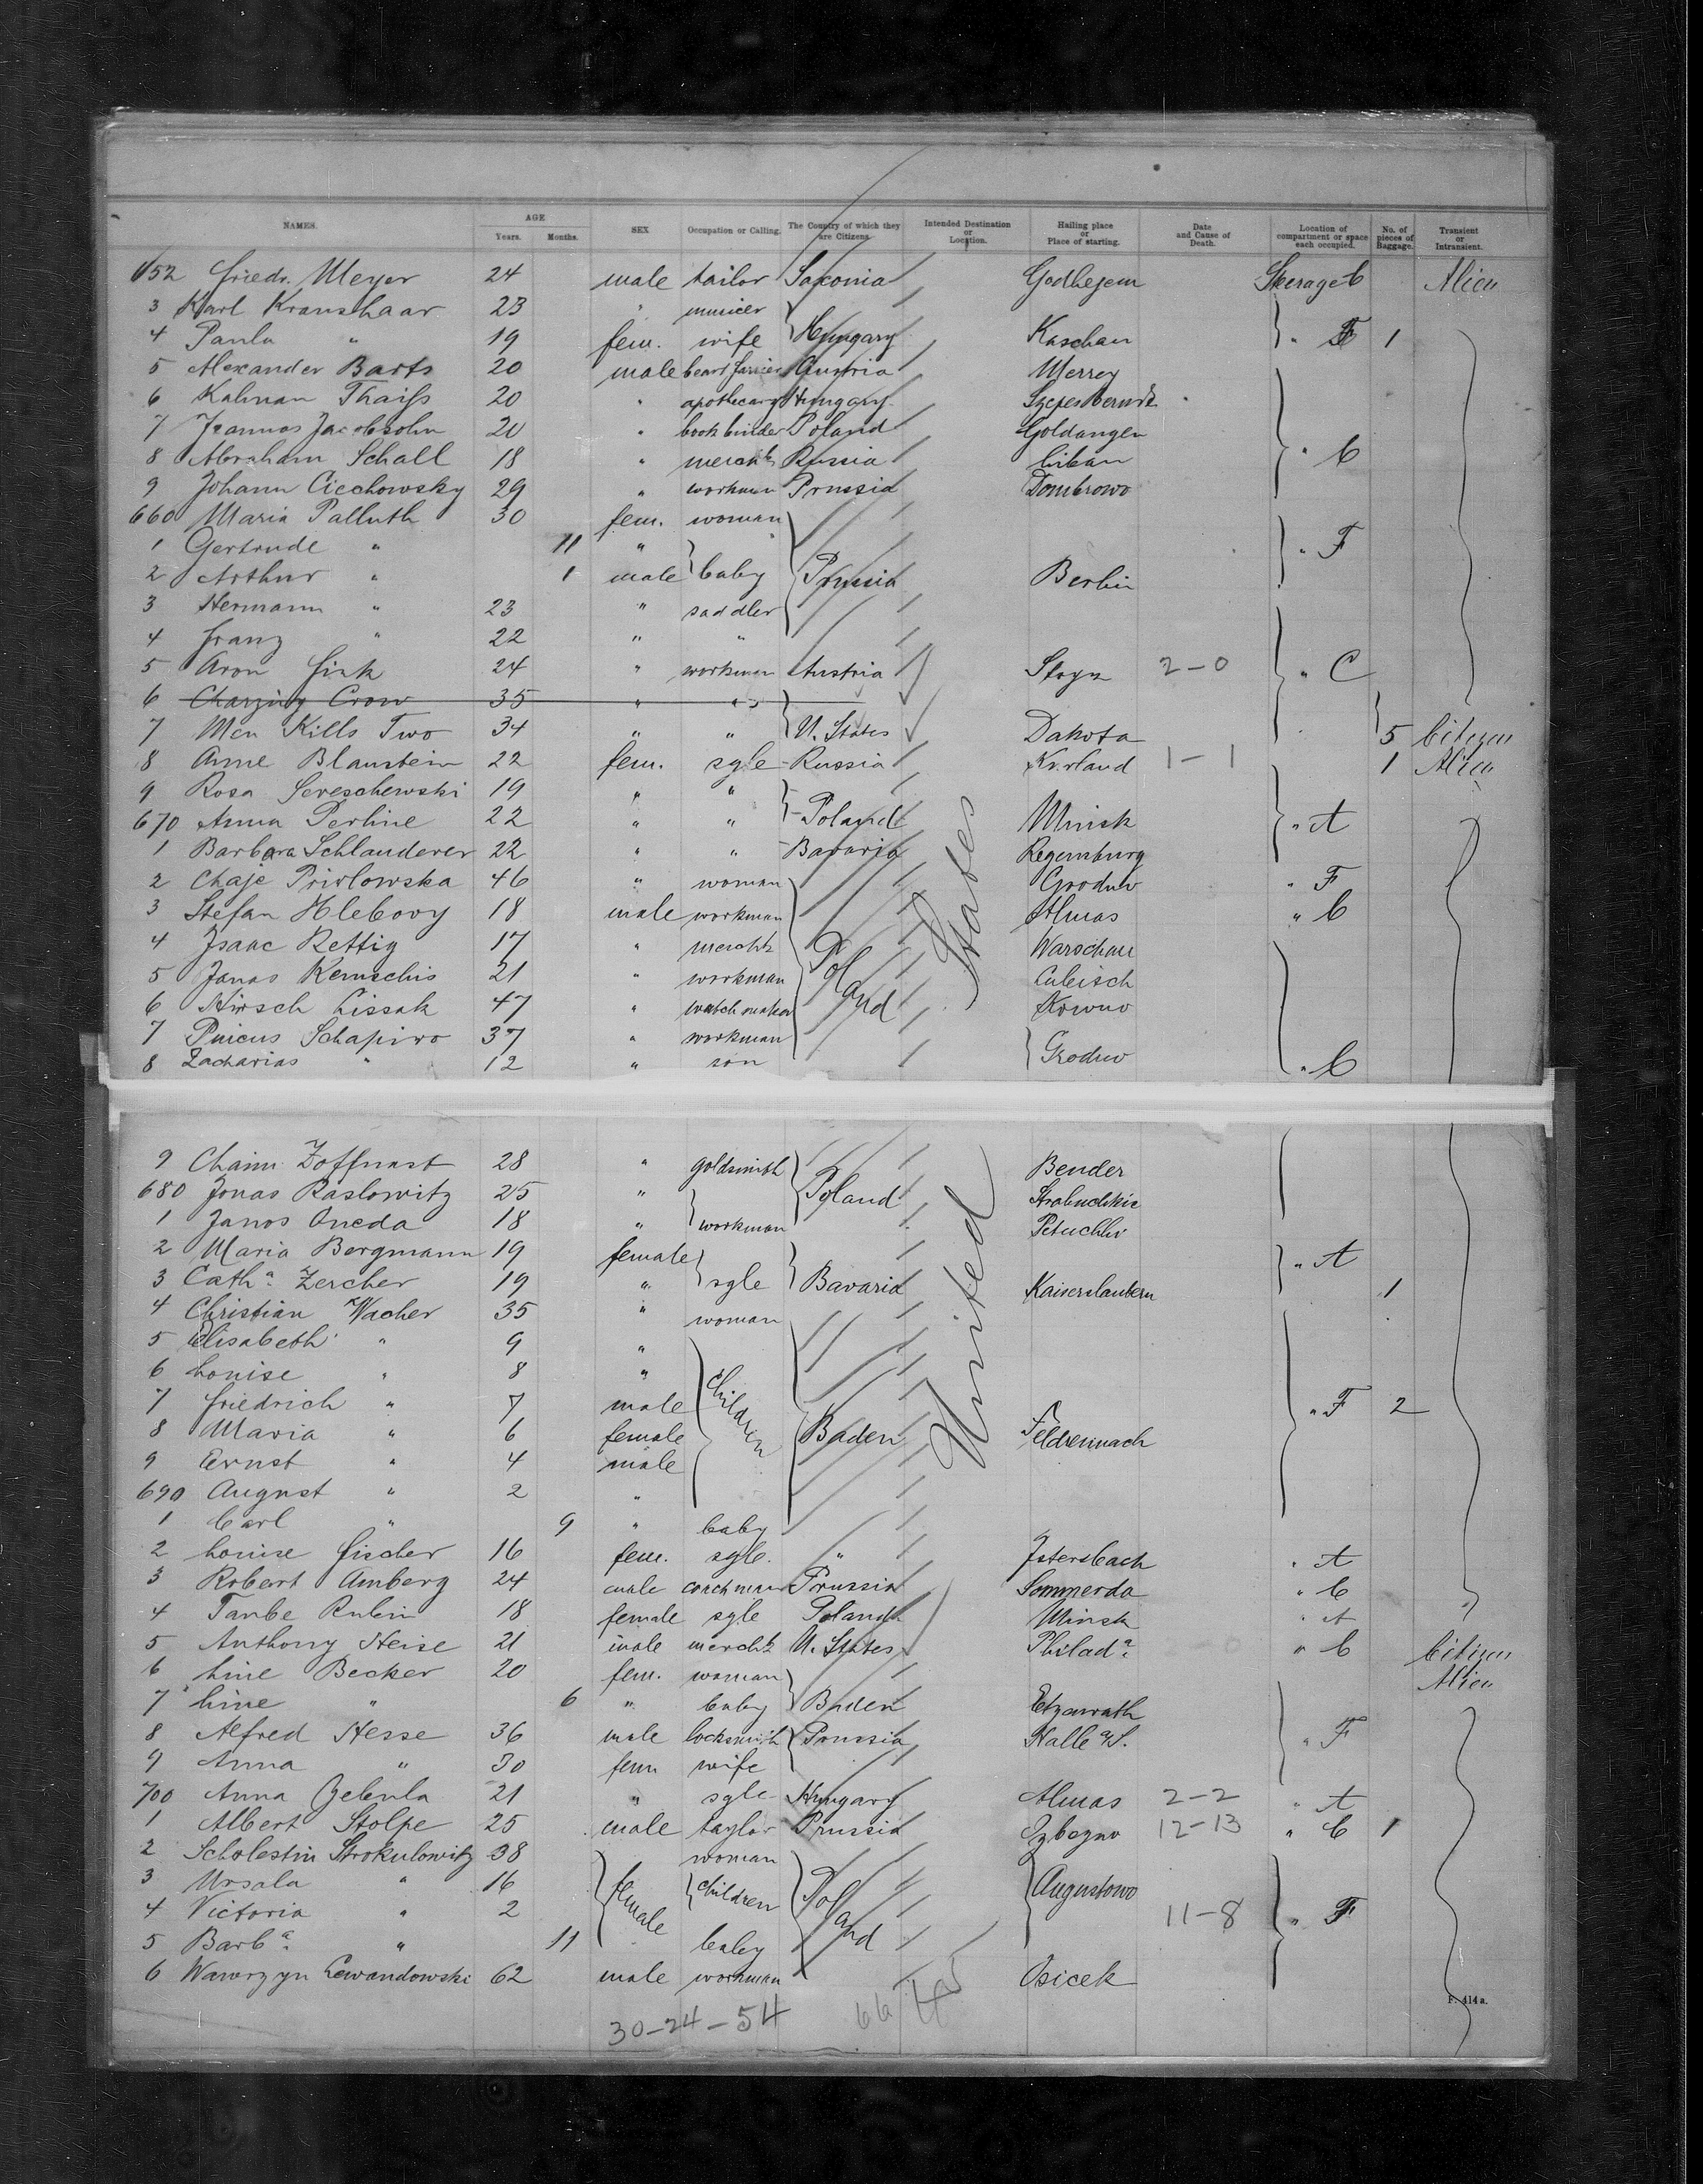 NAMES. AGE Years. Months. SEX Occupation or Calling. The Country of which they are Citizens. Intended Destination or Location. Hailing place or Place of starting. Date and Cause of Death. Location of compartment or space each occupied. No. of pieces of Baggage. Transient or Intransient.
652 Friedr. Meyer 24 male tailor Saxonia Steerage C Alien
3 Karl Kranshaar 23 "
4 Paula " 19 fem. wife Hungary Kaschau " F 1
5 Alexander Barts 20 male Austria Merrey
6 Kalman Thaiss 20 " apothecary Hungary
7 Jacobsohn 20 " bookbinder Poland Goldangen
8 Abraham Schall 18 " mercht Russia Liban " C
9 Johann Ciechowsky 29 " workman Prussia Dombrowo
660 Maria Palluth 30 fem. woman
1 Gertrude " 11 " " F
2 Arthur " 1 male baby Prussia Berlin
3 Hermann " 23 " saddler
4 Franz " 22 " "
5 Aron Fink 24 " workman Austria Stryn 2-0 " C
6 Charging Crow 35 " "
7 Men Kills Two 34 " " U. States Dakota 5 Citizen
8 Anne Blaustein 22 fem. sgle Russia Kurland 1-1 1 Alien
9 Rosa Sereschewski 19 " "
670 Anna Perline 22 " " Poland Minsk " A
1 Barbara Schlanderer 22 " " Bavaria Regensburg
2 Chaje Privlowska 46 " woman Grodno " F
3 Stefan Hlebovy 18 male workman Almas " C
4 Isaac Rettig 17 " mercht Poland Warschau
5 Janos Kemschis 21 " workman Lubisch
6 Hirsch Lissak 47 " watchmaker Kowno
7 Pincus Schapiro 37 " workman
8 Zacharias " 12 " son Grodno " C
States
9 Chaim Zoffnast 28 " goldsmith Bender
680 Jonas Raslowitz 25 " Poland
1 Janos Oneda 18 " workman
2 Maria Bergmann 19 female " A
3 Catha. Zercher 19 " sgle Bavaria Kaiserslautern 1
4 Christian Wacher 35 " woman
5 Elisabeth " 9 "
6 Louise " 8 "
7 Friedrich " 7 male children " F 2
8 Maria " 6 female Baden Feldrennach
9 Ernst " 4 male
690 August " 2 "
1 Carl " 9 " baby
United
2 Louise Fischer 16 fem. sgle. " " A
3 Robert Amberg 24 male coachman Prussia Sommerda " C
4 Taube Rubin 18 female sgle Poland Minsk " A
5 Anthony Heise 21 male mercht U. States Philada. " C Citizen
6 Line Becker 20 fem. woman Alien
7 Line " 6 " baby Baden
8 Alfred Hesse 36 male locksmith Prussia Halle a/S. " F
9 Anna " 30 fem wife
700 Anna Zelenla 21 " sgle Hungary Almas 2-2 " A
1 Albert Stolpe 25 male taylor Prussia 12-13 " C 1
2 Scholestin Strokulowitz 38 woman
3 Ursala " 16 female children Poland Augustowo
4 Victoria " 2 11-8 " F
5 Barba. " 11 baby
6 Wawrzyn Lewandowski 62 male workman Osicek
F. 414a.
30-24-54 66